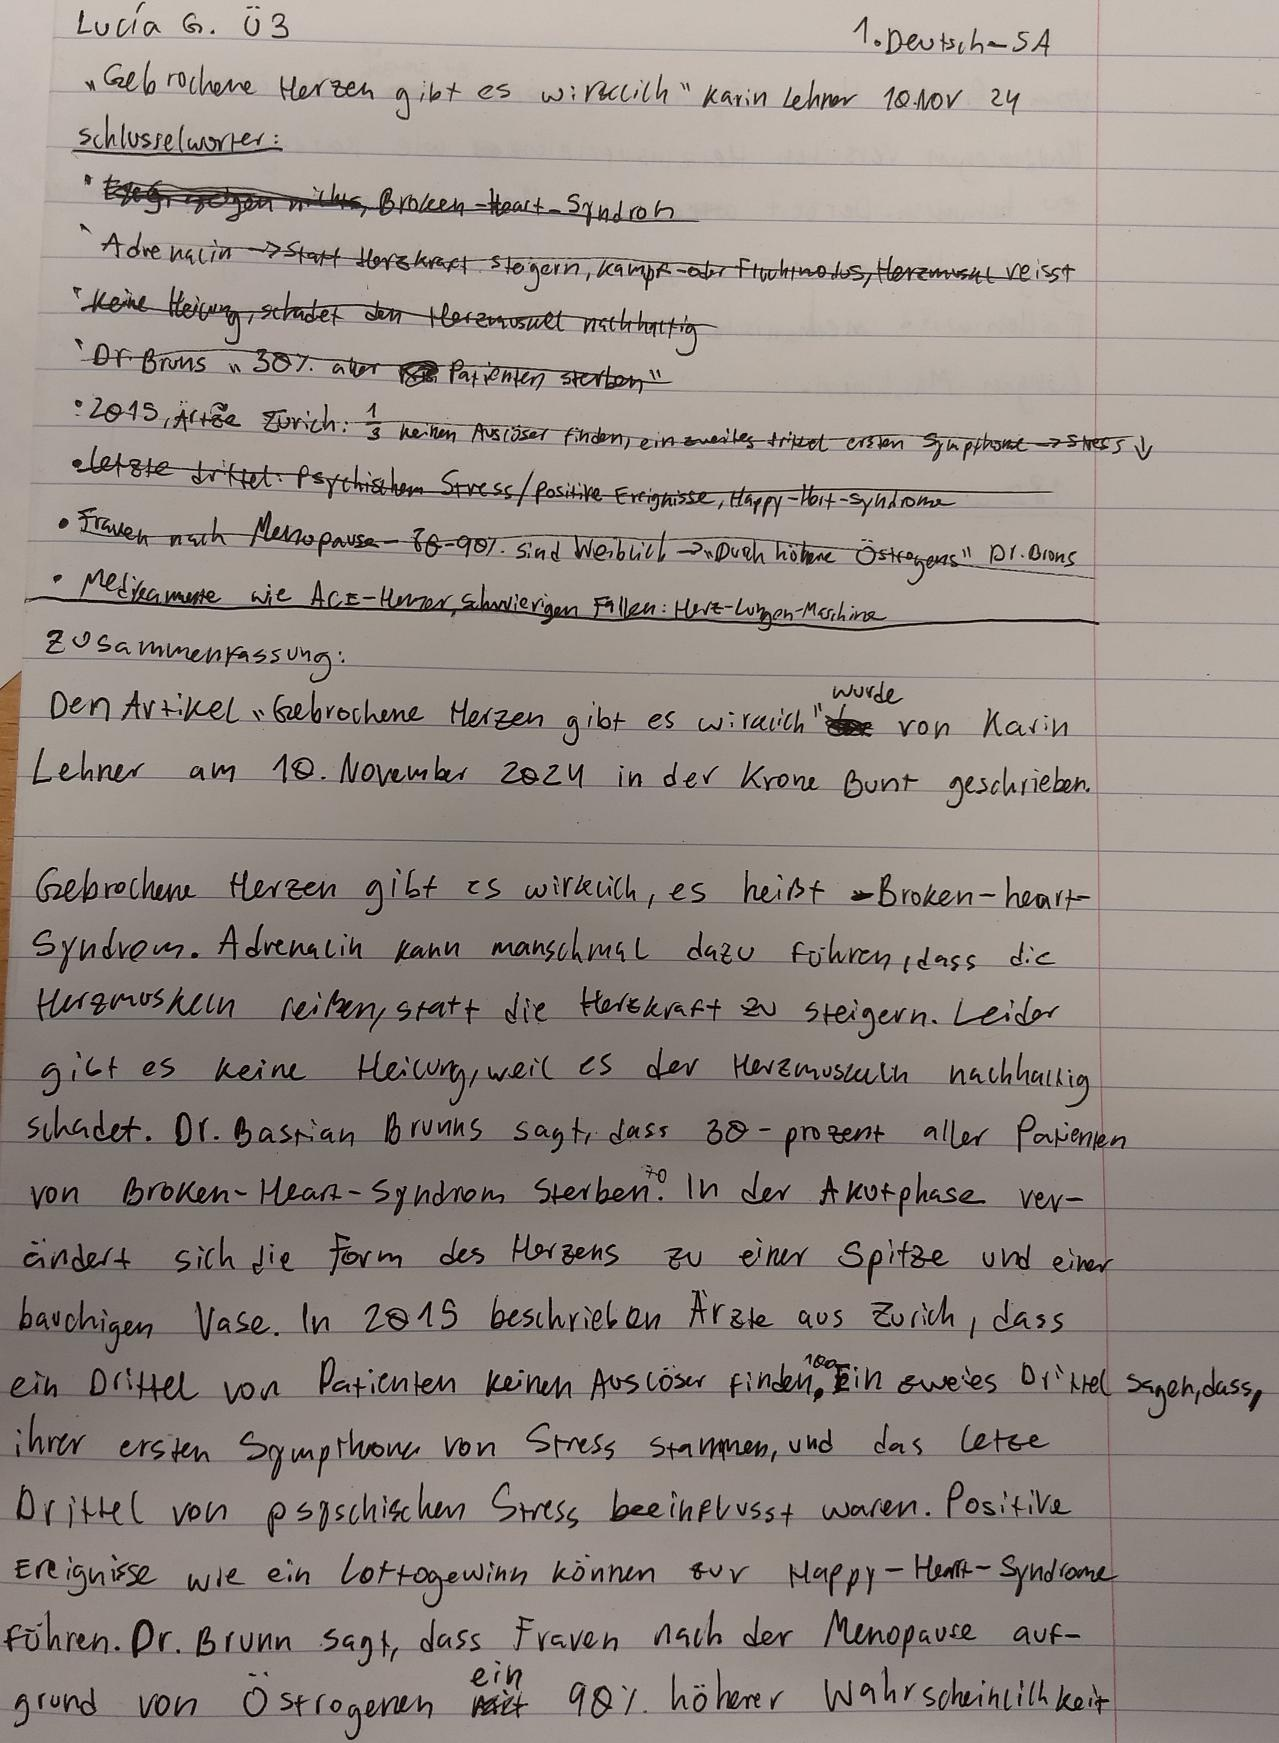 Lucía G. Ü3 1. Deutsch-SA
„Gebrochene Herzen gibt es wirklich" Karin Lehner 10.Nov 24
schlusselworter:
• nichts, Broken-Heart-Syndrom
• Adrenalin → statt Herzkraft steigern, kampf-oder Fluchmodus, Herzmuskel reisst
• keine Heilung, schadet den Herzmuskel nachhaltig
• Dr. Bruns „30% aller Patienten sterben"
• 2015, Ärtze Zürich: 1/3 keinen Auslöser finden, ein zweites drittel ersten Symphtome → stress ↓
• letzte drittel: Psychischem Stress/positive Ereignisse, Happy-Hart-Syndrome
• Frauen nach Menopause - 70-90% sind Weiblich → „Duch höhere Östrogens" Dr. Bruns
• Medikamente wie ACE-Hemer, schwierigen Fällen: Herz-Lungen-Maschine
Zusammenfassung:
Den Artikel „Gebrochene Herzen gibt es wirklich" wurde von Karin
Lehner am 10. November 2024 in der Krone Bunt geschrieben.
Gebrochene Herzen gibt es wirklich, es heißt Broken-heart-
Syndrom. Adrenalin kann manschmal dazu führen, dass die
Herzmuskeln reißen, statt die Herzkraft zu steigern. Leider
gibt es keine Heilung, weil es der Herzmuskeln nachhaltig
schadet. Dr. Bastian Brunns sagt, dass 30-prozent aller Patienten
von Broken-Heart-Syndrom sterben.70 In der Akutphase ver-
ändert sich die Form des Herzens zu einer Spitze und einer
bauchigen Vase. In 2015 beschrieben Ärzte aus Zurich, dass
ein Drittel von Patienten keinen Auslöser finden.100 Ein zweies Drittel sagen, dass,
ihrer ersten Symphtome von Stress stammen, und das letze
Drittel von psyschischen Stress beeinflusst waren. Positive
Ereignisse wie ein Lottogewinn können zur Happy-Heart-Syndrome
führen. Dr. Brunn sagt, dass Frauen nach der Menopause auf-
grund von Östrogenen ein 90% höherer Wahrscheinlichkeit